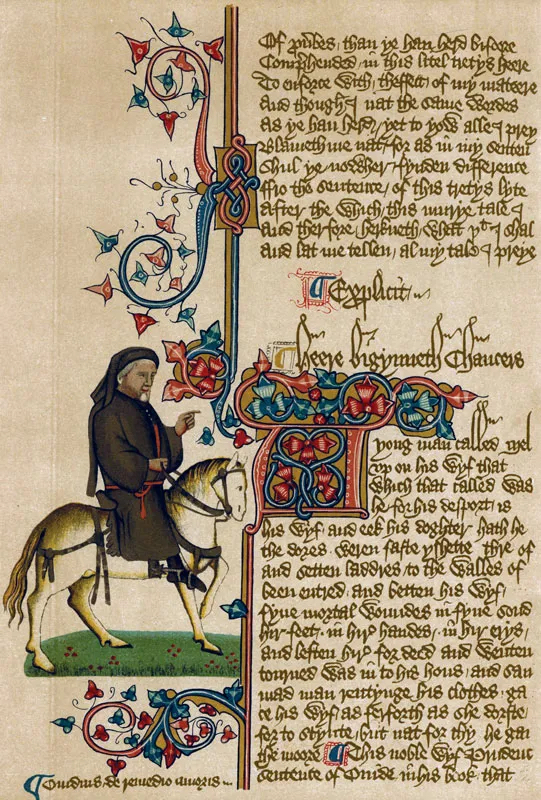 Of prouerbes / than ye han herd bifore
Comprehended / in this litel tretys heere
To enforce with / theffect / of my mateere
And though I nat the same wordes
as ye han herd / yet to yow alle I prey
Blameth me nat / for as in my senten
Shul ye nowher / fynden difference
ffro the sentence / of this tretys lyte
after the which / this murye tale I
and therfore / herkneth / what þt I shal
and lat me tellen / al my tale I preye
¶ Explicit
¶ Heere bigynneth Chaucers
A yong man called Mel
vp on his wyf that
which that called was
he for his desport / is
his wyf / and eek his doghter hath he
the dores weren faste yshette / thre of
and setten laddres / to the walles of
been entred / and betten his wyf /
fyue mortal woundes in fyue sond
hir feet / in hir handes / in hir erys /
and leften hir for deed and wenten
tourned was in to his hous / and sau
mad man rentynge his clothes / ga
ce his wyf / as ferforth as she dorste
for to stynte / but nat for thy he ga
the moore ¶ This noble wyf Prudenc
sentence of Ouide in his book / that
¶ Ouidius de remedio amoris